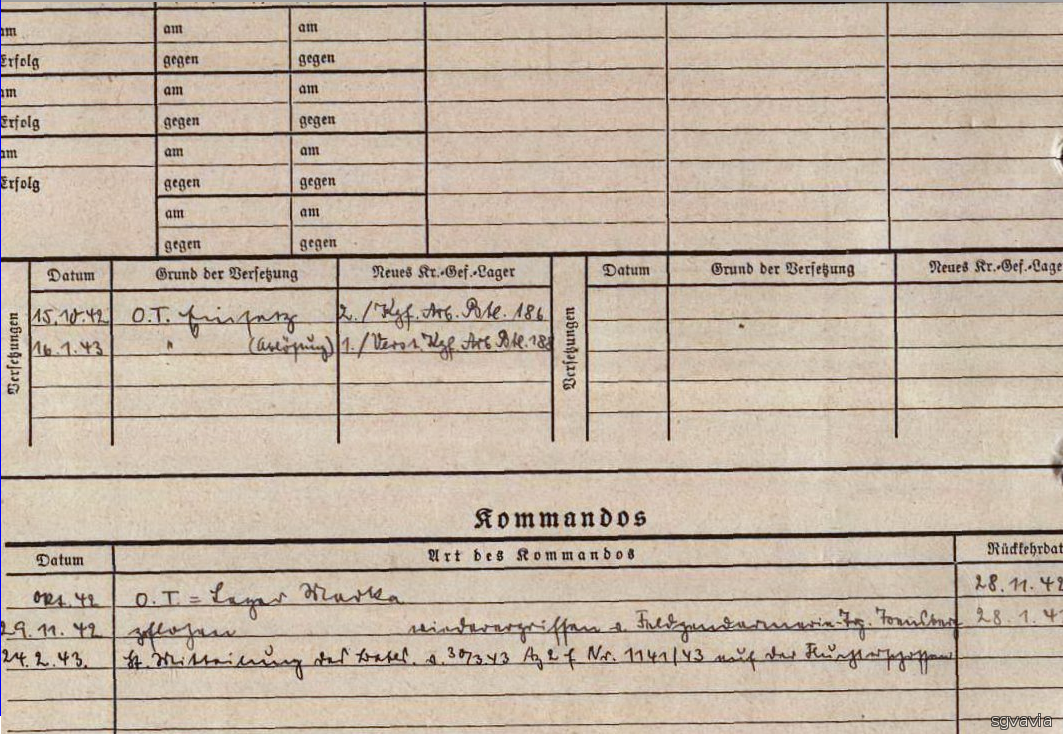 am am am
Erfolg gegen gegen
am am am
Erfolg gegen gegen
am am am
Erfolg gegen gegen
am am
gegen gegen
Versetzungen
Datum Grund der Versetzung Neues Kr.-Gef.-Lager
15.10.42 O.T. Einsatz 2./Kgf. Arb. Btl. 186
16.1.43 " (Ablösung) 1./Verst. Kgf. Arb. Btl. 188
Versetzungen
Datum Grund der Versetzung Neues Kr.-Gef.-Lage
Kommandos
Datum Art des Kommandos Rückkehrdat
Okt. 42 O.T. = Lager Marka 28.11.42
29.11.42 geflohen wiederergriffen v. Feldgendarmerie-Trp. Toensberg 28.1.4
24.2.43. lt. Mitteilung des Batls. v. 30/3 43 Az 2 f Nr. 1141/43 auf der Flucht erschossen
sgvavia